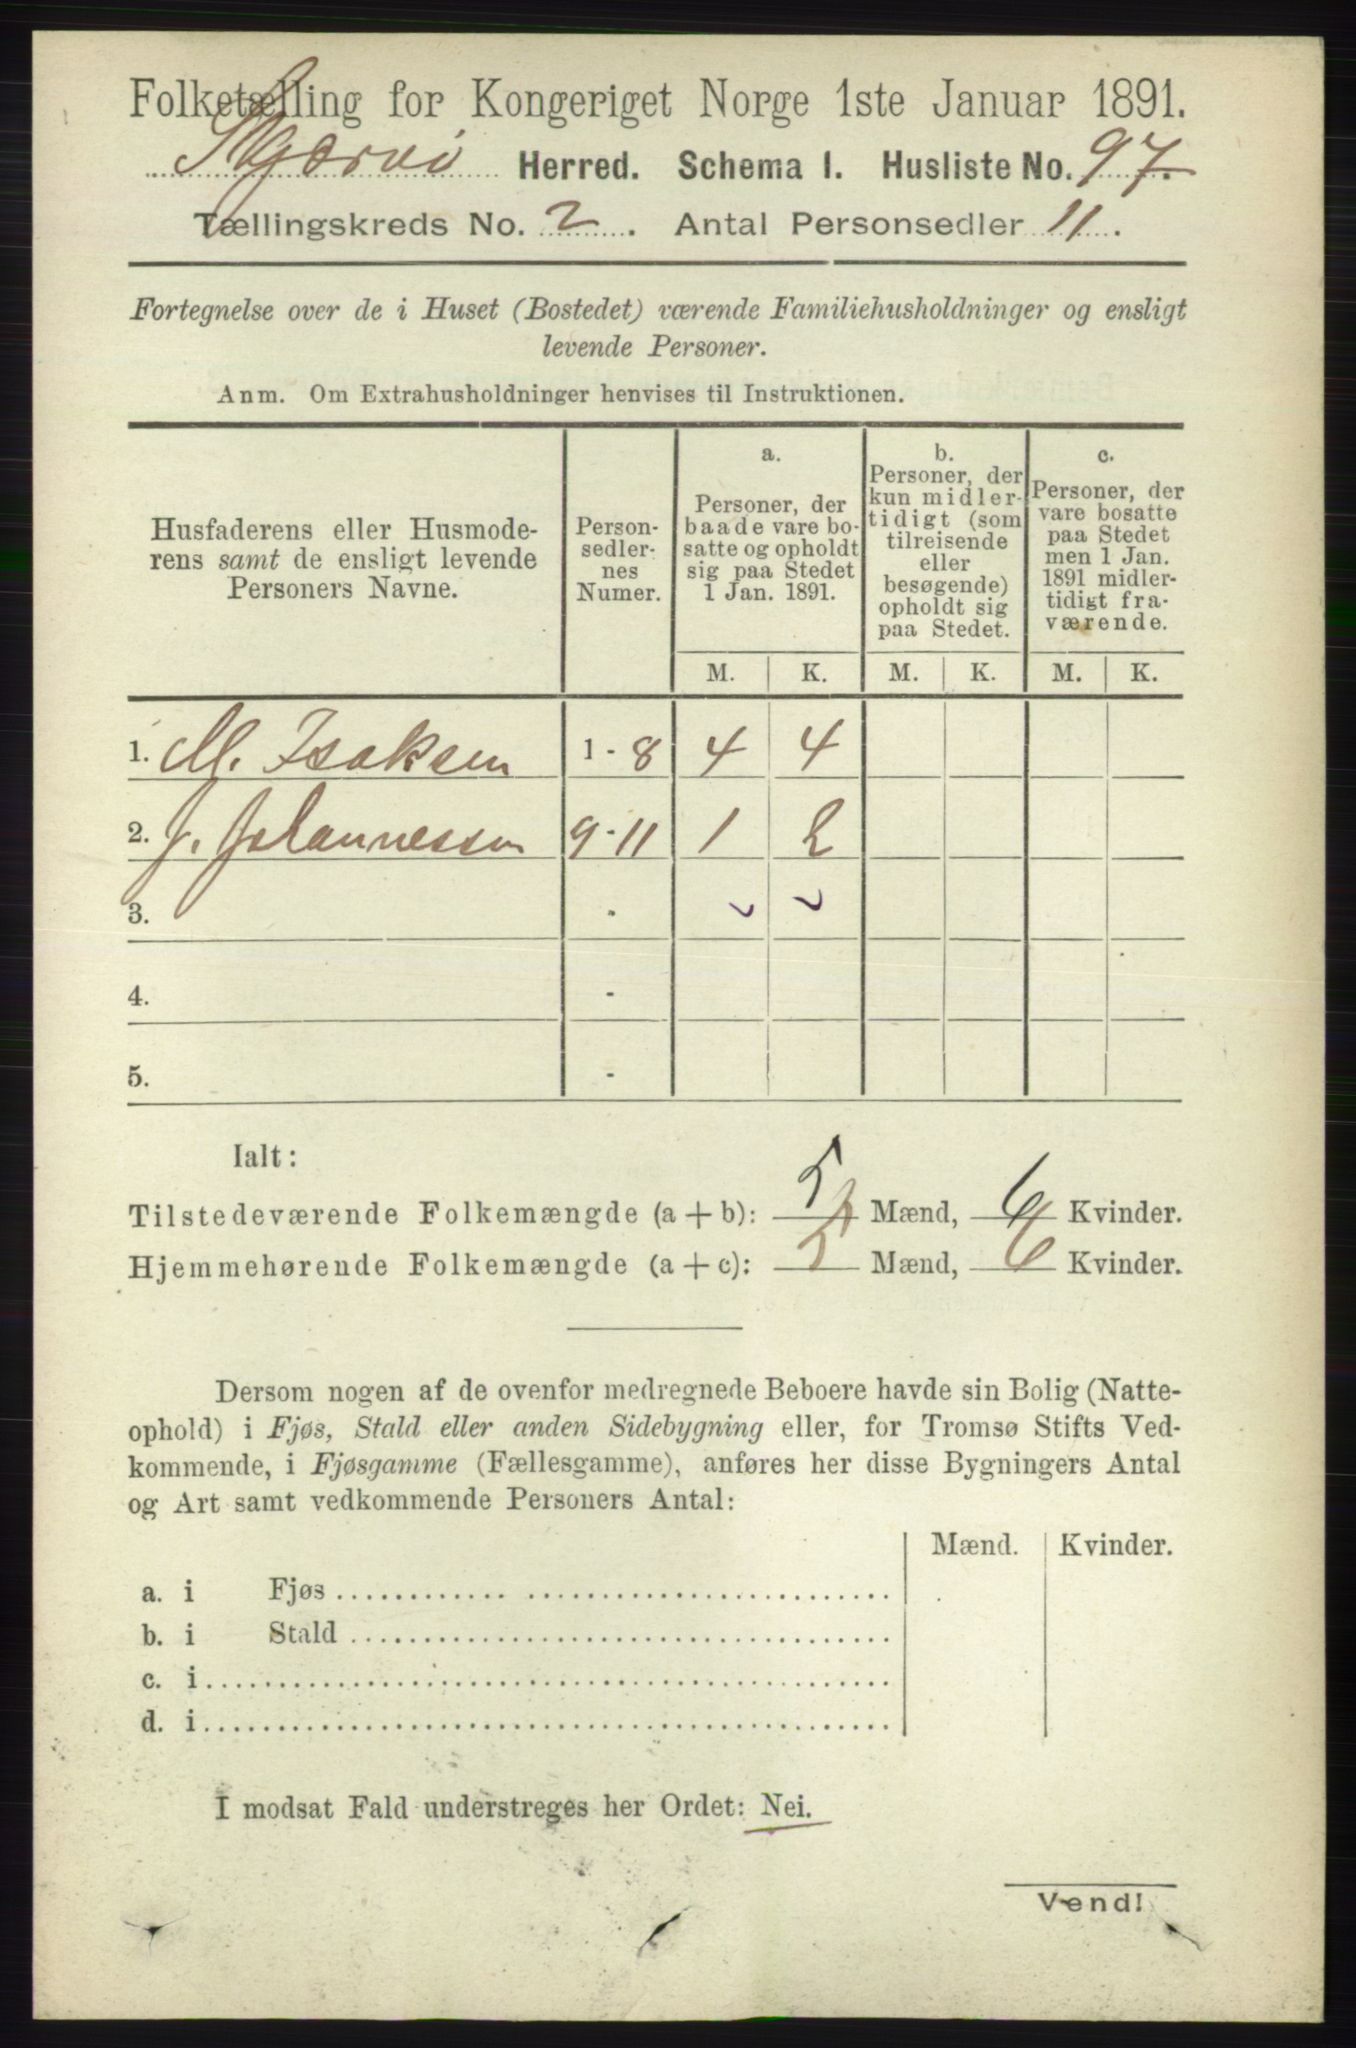 Folketælling for Kongeriget Norge 1ste Januar 1891.
Skjærvø Herred. Schema I. Husliste No. 97.
Tællingskreds No. 2. Antal Personsedler 11.
Fortegnelse over de i Huset (Bostedet) værende Familiehusholdninger og ensligt
levende Personer.
Anm. Om Extrahusholdninger henvises til Instruktionen.
Husfaderens eller Husmode-
rens samt de ensligt levende
Personers Navne.
Person-
sedler-
nes
Numer.
a.
Personer, der
baade vare bo-
satte og opholdt
sig paa Stedet
1 Jan. 1891.
b.
Personer, der
kun midler-
tidigt (som
tilreisende
eller
besøgende)
opholdt sig
paa Stedet.
c.
Personer, der
vare bosatte
paa Stedet
men 1 Jan.
1891 midler-
tidigt fra-
værende.
M. K. M. K. M. K.
1. M. Isaksen 1 - 8 4 4
2. J. Johannessen 9-11 1 2
3. -
4. -
5. -
Ialt:
Tilstedeværende Folkemængde (a + b): 5 Mænd, 6 Kvinder.
Hjemmehørende Folkemængde (a + c): 5 Mænd, 6 Kvinder.
Dersom nogen af de ovenfor medregnede Beboere havde sin Bolig (Natte-
ophold) i Fjøs, Stald eller anden Sidebygning eller, for Tromsø Stifts Ved-
kommende, i Fjøsgamme (Fællesgamme), anføres her disse Bygningers Antal
og Art samt vedkommende Personers Antal:
Mænd. Kvinder.
a. i Fjøs
b. i Stald
c. i
d. i
I modsat Fald understreges her Ordet: Nei.
Vend!